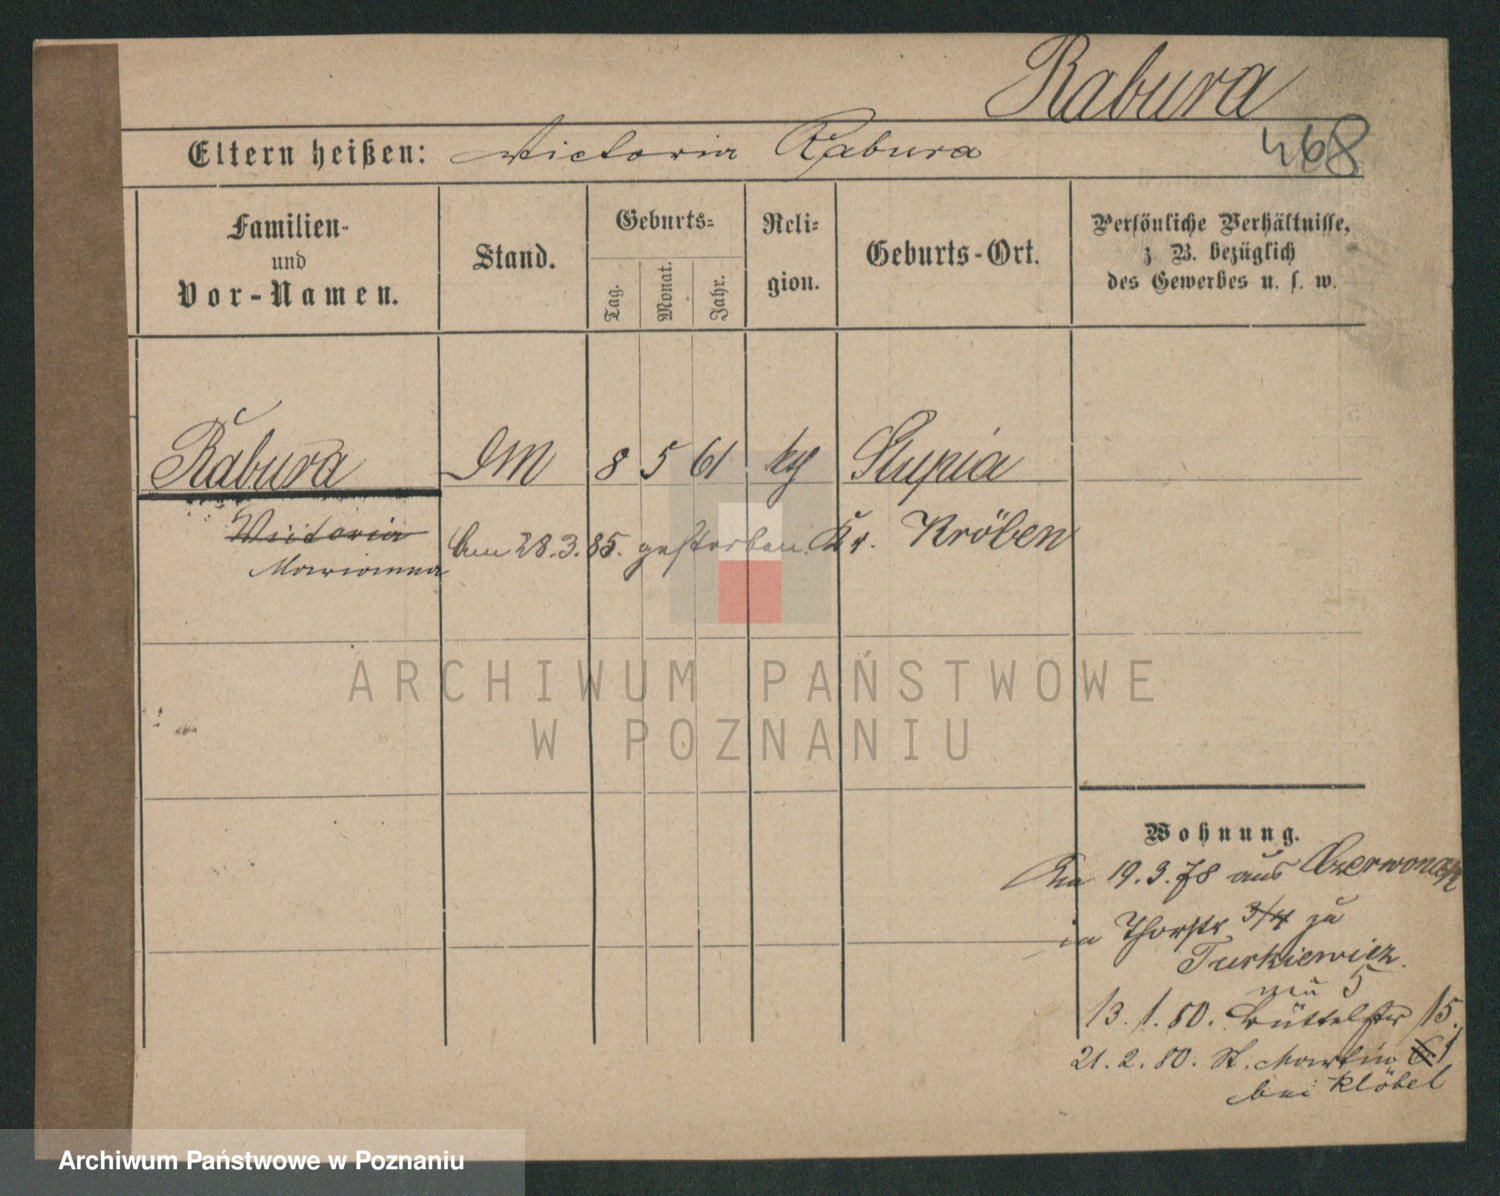 Rabura
468
Eltern heißen: Victoria Rabura
Familien-
und
Vor-Namen.
Stand.
Geburts-
Tag.
Monat.
Jahr.
Reli-
gion.
Geburts-Ort.
Persönliche Verhältnisse,
z. B. bezüglich
des Gewerbes u. s. w.
Rabura DM 8 5 61 kth Slupia
Victoria
Marianna
Am 28.3.85. gestorben. Kr. Kröben
ARCHIWUM PAŃSTWOWE
W POZNANIU
Wohnung.
Am 19.3.78 aus Czerwonak
in Thorstr 3/4 zu
Turkiewicz.
neu 5
13.1.80. Büttelstr 15.
21.2.80. St. Martin 61
bei Klöbel
Archiwum Państwowe w Poznaniu